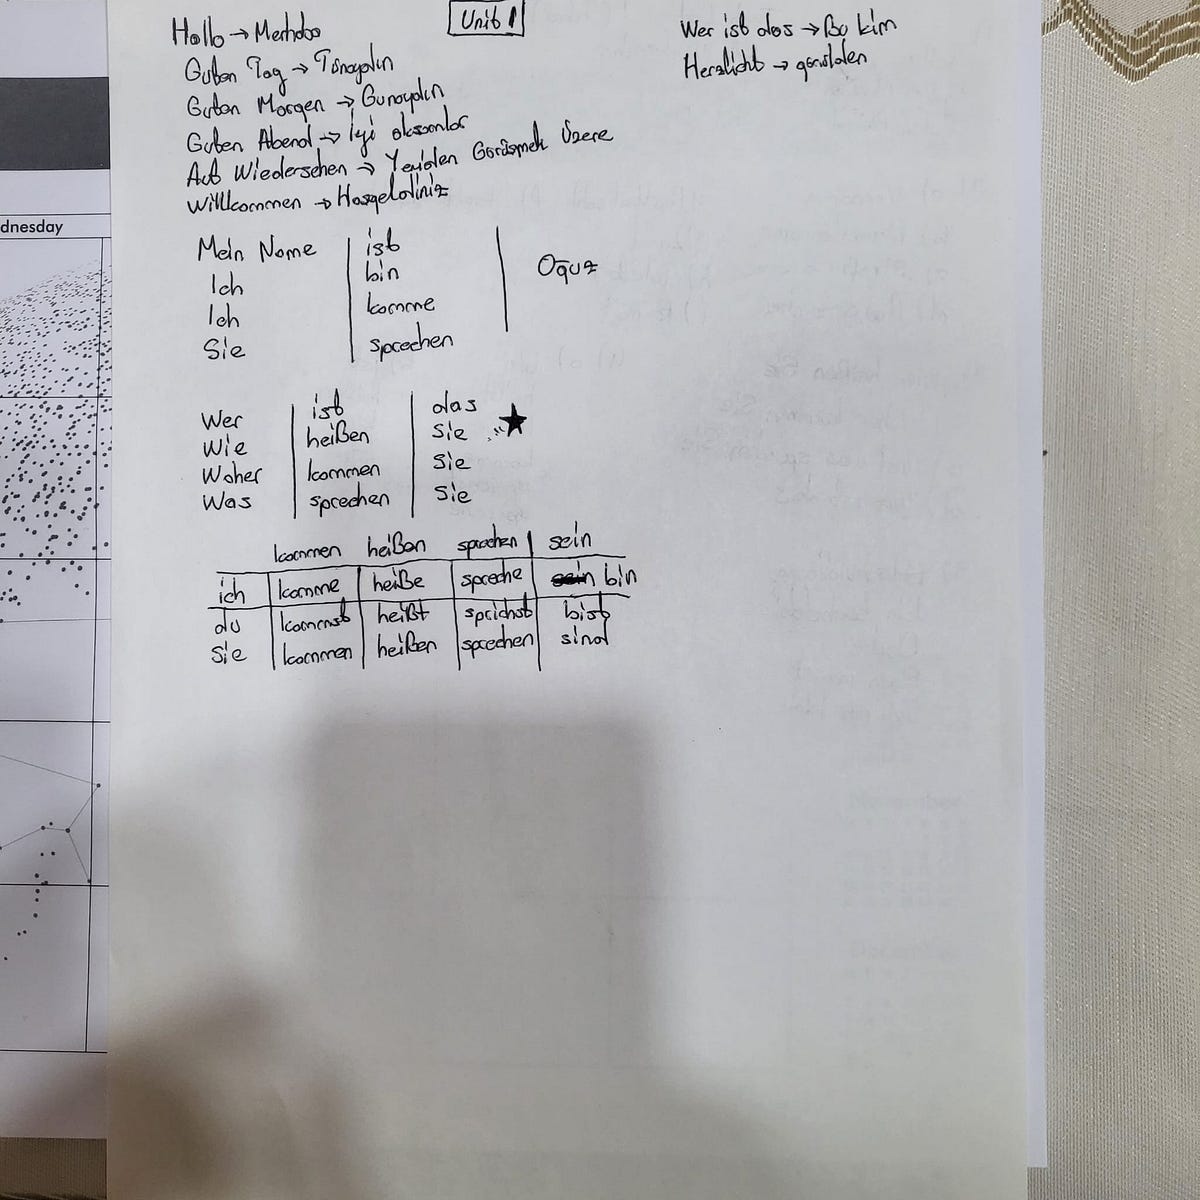 Unit 1
Hallo → Merhaba
Guten Tag → Tünaydın
Guten Morgen → Günaydın
Guten Abend → İyi akşamlar
Auf Wiedersehen → Yeniden Görüşmek Üzere
Willkommen → Hoşgeldiniz
Wer ist das → Bu kim
Herzlicht → gönülden
Mein Name | ist | Oğuz
Ich | bin
Ich | komme
Sie | sprechen
Wer | ist | das
Wie | heißen | Sie ★
Woher | kommen | Sie
Was | sprechen | Sie
kommen heißen sprechen | sein
ich | komme | heiße | spreche | bin
du | kommst | heißt | sprichst | bist
Sie | kommen | heißen | sprechen | sind
dnesday